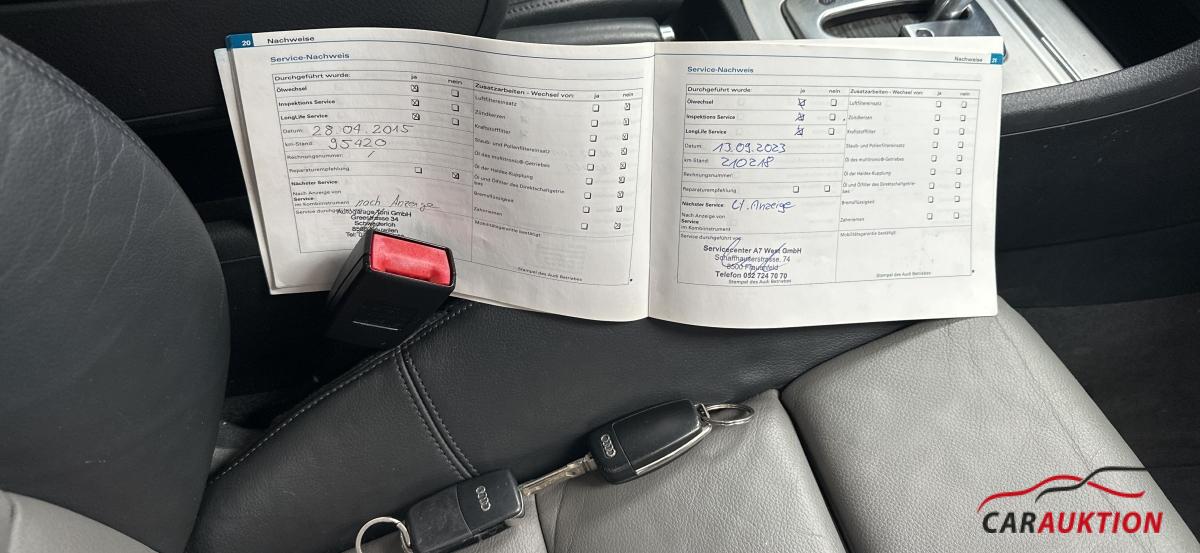 20 Nachweise
Service-Nachweis
Durchgeführt wurde: ja nein
Ölwechsel
Inspektions Service
LongLife Service
Datum: 28.04.2015
km-Stand: 95420
Rechnungsnummer: /
Reparaturempfehlung
Nächster Service:
Nach Anzeige von
Service
im Kombiinstrument nach Anzeige
Service durchgeführt
GmbH
34
Zusatzarbeiten - Wechsel von: ja nein
Luftfiltereinsatz
Zündkerzen
Kraftstofffilter
Staub- und Pollenfiltereinsatz
Öl des multitronic®-Getriebes
Öl der Haldex-Kupplung
Öl und Ölfilter des Direktschaltgetrie-
bes
Bremsflüssigkeit
Zahnriemen
Mobilitätsgarantie bestätigt:
Stempel des Audi Betriebes
Nachweise 21
Service-Nachweis
Durchgeführt wurde: ja nein
Ölwechsel
Inspektions Service
LongLife Service
Datum: 13.09.2023
km-Stand: 210218
Rechnungsnummer:
Reparaturempfehlung
Nächster Service:
Anzeige
Nach Anzeige von
Service
im Kombiinstrument
Service durchgeführt von:
Servicecenter A7 West GmbH
Schaffhauserstrasse, 74
8500 Frauenfeld
Telefon 052 724 70 70
Stempel des Audi Betriebes
Zusatzarbeiten - Wechsel von: ja nein
Luftfiltereinsatz
Zündkerzen
Kraftstofffilter
Staub- und Pollenfiltereinsatz
Öl des multitronic®-Getriebes
Öl der Haldex-Kupplung
Öl und Ölfilter des Direktschaltgetrie-
bes
Bremsflüssigkeit
Zahnriemen
Mobilitätsgarantie bestätigt:
Stempel des Audi Betriebes
CARAUKTION